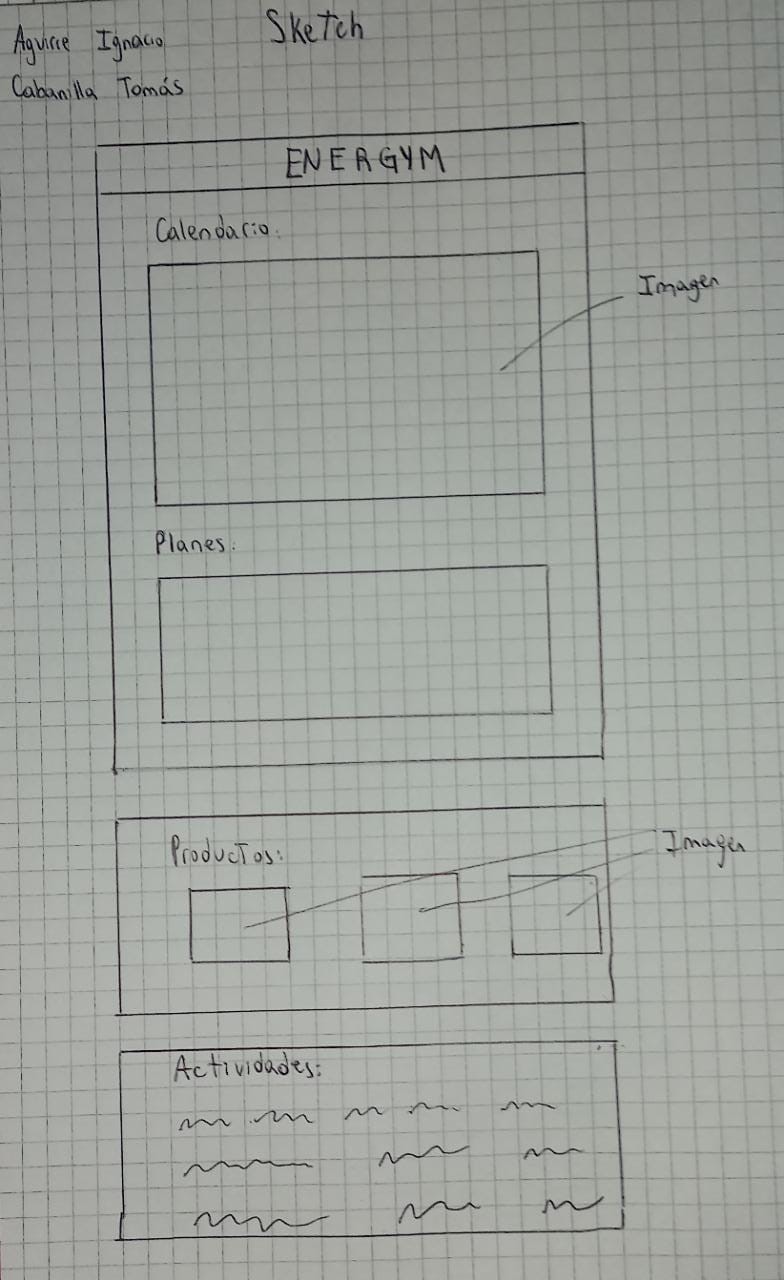 Sketch
Aguirre Ignacio
Cabanilla Tomás
ENERGYM
Calendario:
Imagen
Planes:
Productos:
Imagen
Actividades: